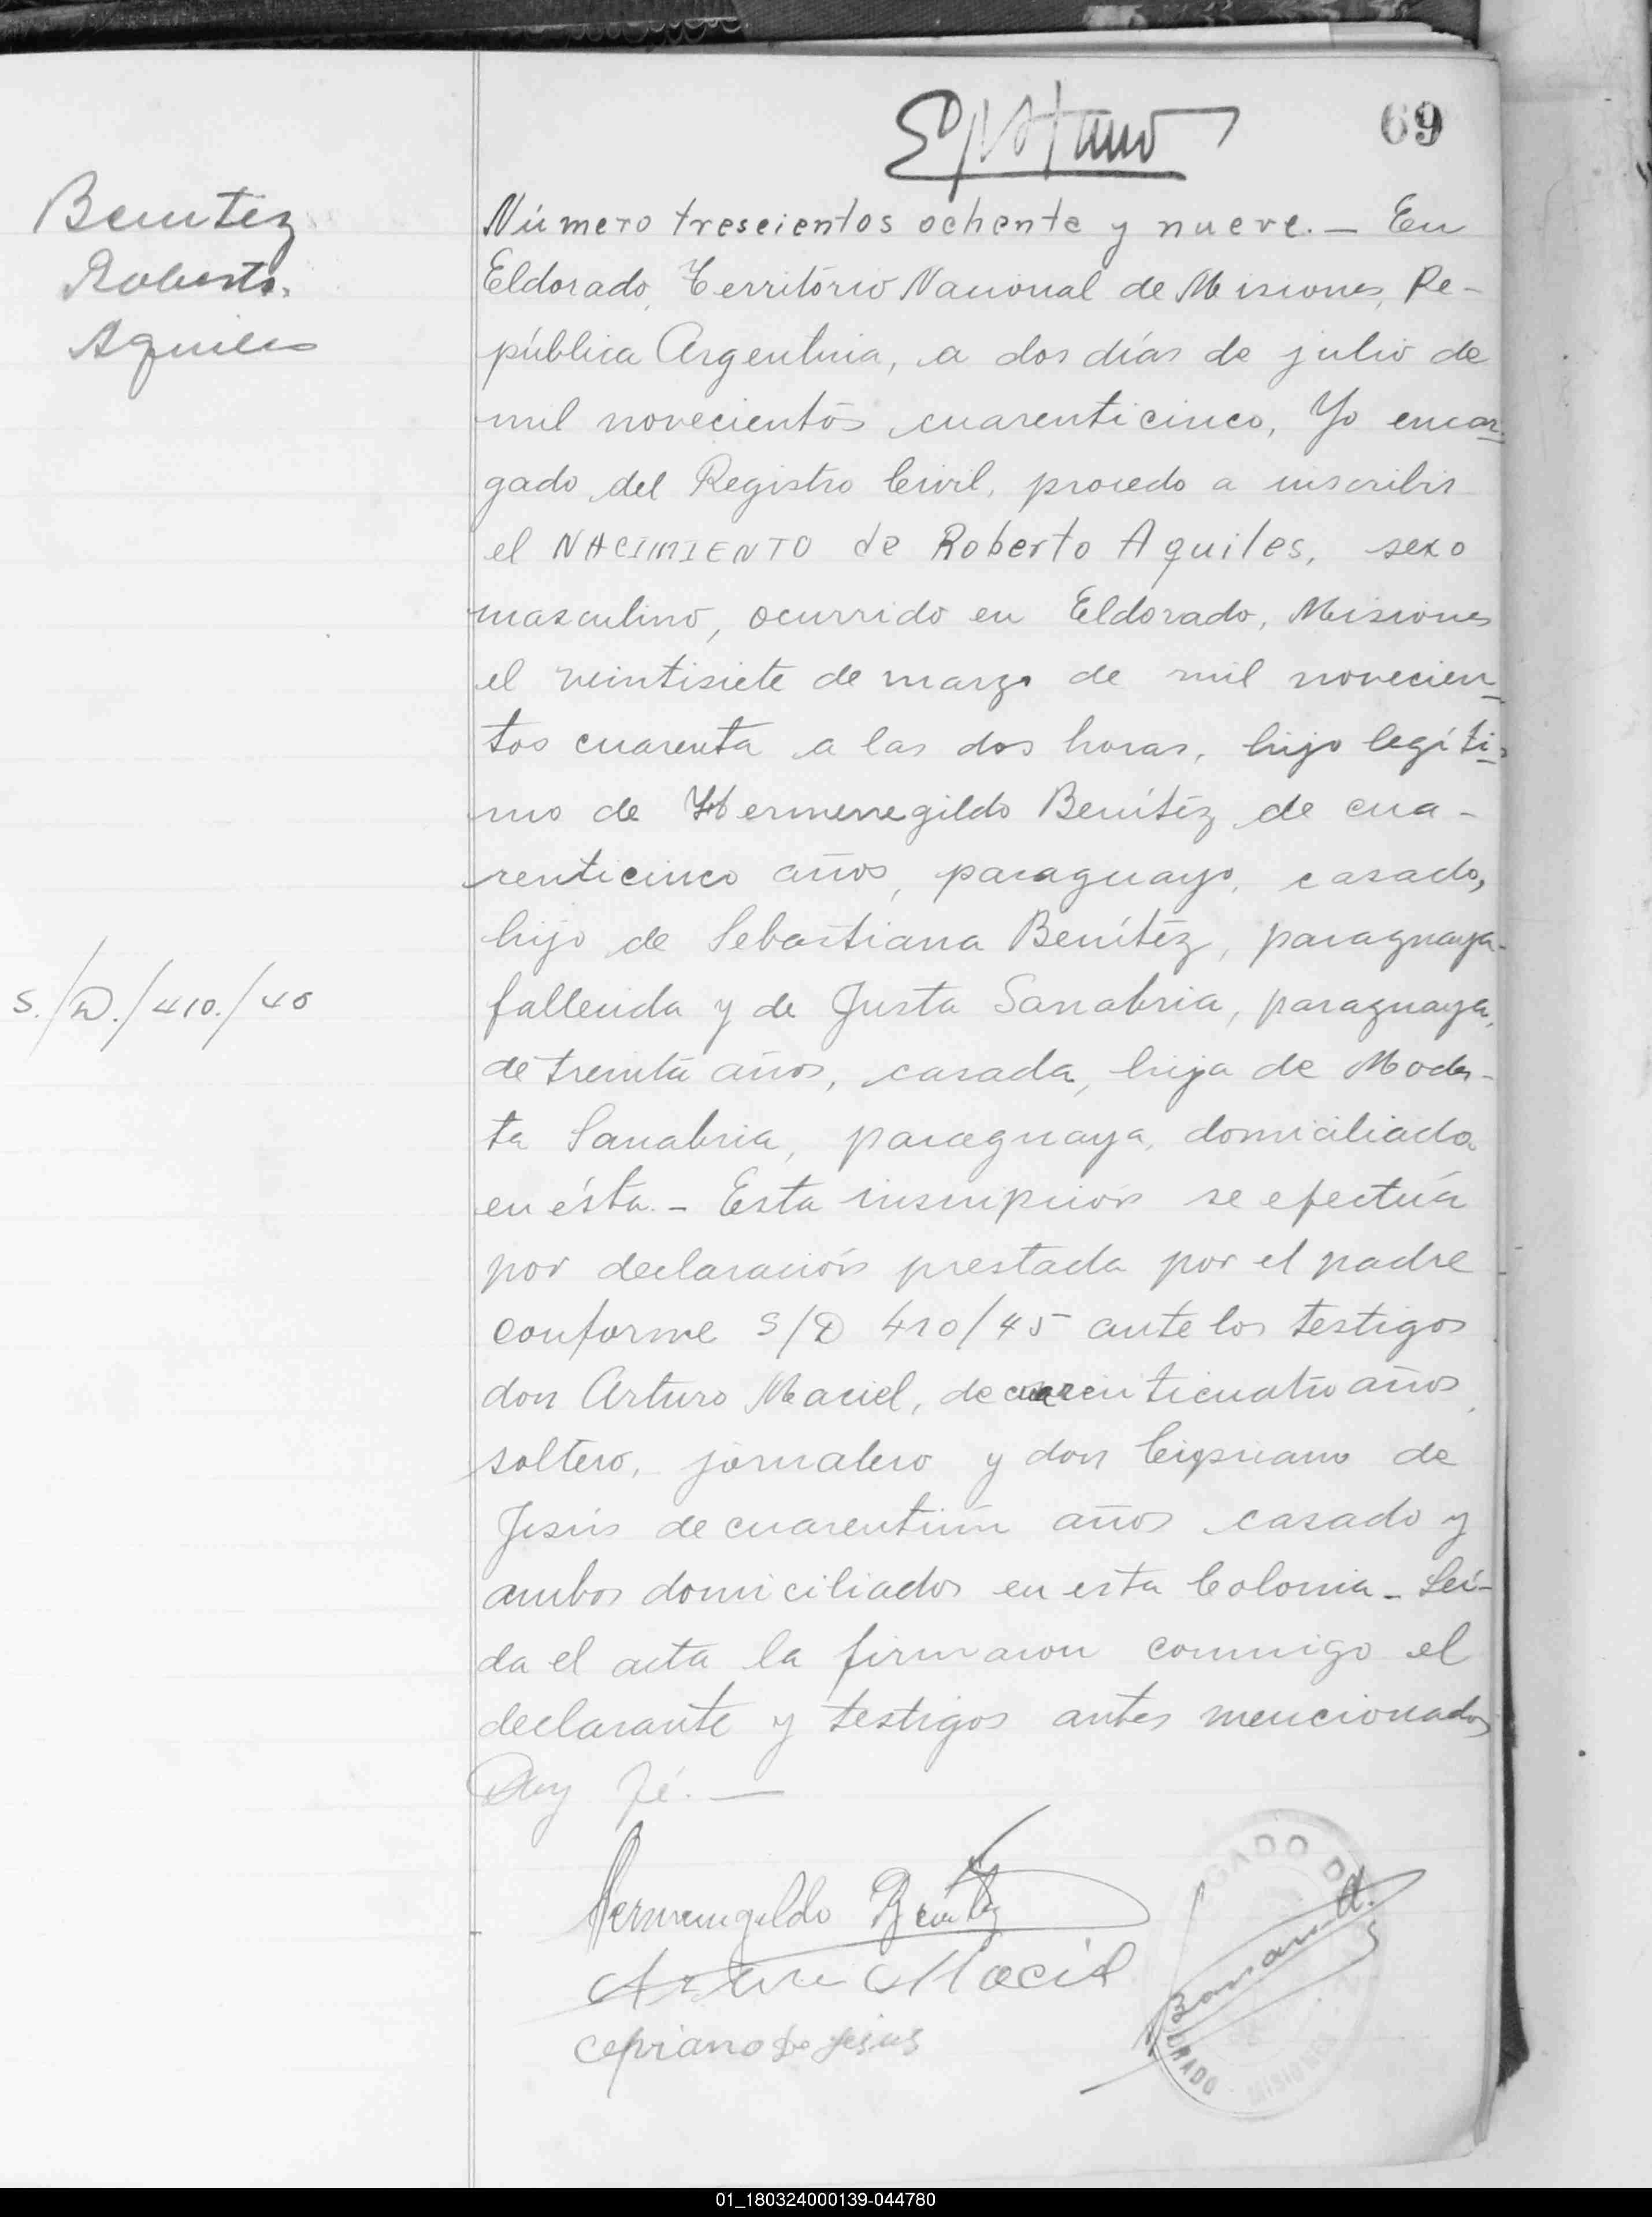 69
Benitez
Roberto
Aquiles
Número trescientos ochenta y nueve. — En
Eldorado, Territorio Nacional de Misiones, Re-
pública Argentina, a dos días de julio de
mil novecientos cuarenticinco, Yo encar-
gado del Registro Civil, procedo a inscribir
el NACIMIENTO de Roberto Aquiles, sexo
masculino, ocurrido en Eldorado, Misiones
el veintisiete de marzo de mil novecien-
tos cuarenta a las dos horas, hijo legíti-
mo de Hermenegildo Benítez de cua-
renticinco años, paraguayo, casado,
hijo de Sebastiana Benítez, paraguaya
fallecida y de Justa Sanabria, paraguaya,
de treinta años, casada, hija de Modes-
ta Sanabria, paraguaya, domiciliada
en ésta. - Esta inscripción se efectúa
por declaración prestada por el padre
conforme S/D 410/45 ante los testigos
don Arturo Maciel, de cuarenticuatro años,
soltero, jornalero y don Cipriano de
Jesús de cuarentiún años casado y
ambos domiciliados en esta Colonia - Leí-
da el acta la firmaron conmigo el
declarante y testigos antes mencionados
Doy fé. —
S./D./410./40
Hermenegildo Benitez
Arturo Maciel
Cipriano De Jesus
GADO D
MISIONES
01_180324000139-044780